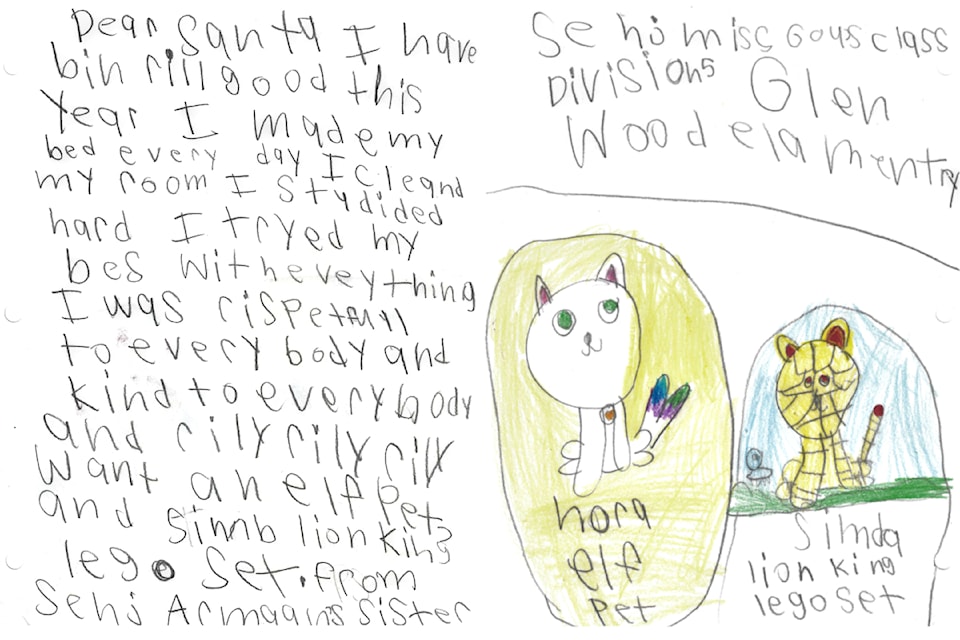 Dear Santa I have
bin rill good this
Year I made my
bed every day I cleand
my room I stydided
hard I tryed my
bes with eveything
I was rispetfull
to every body and
kind to every body
and rily rily rily
want an elf pet
and Simb lion king
lego set. from
Sehj Armaan's sister
Sehj misc Gous class
Division5 Glen
Wood elamentry
nora
elf
pet
Simda
lion king
lego set